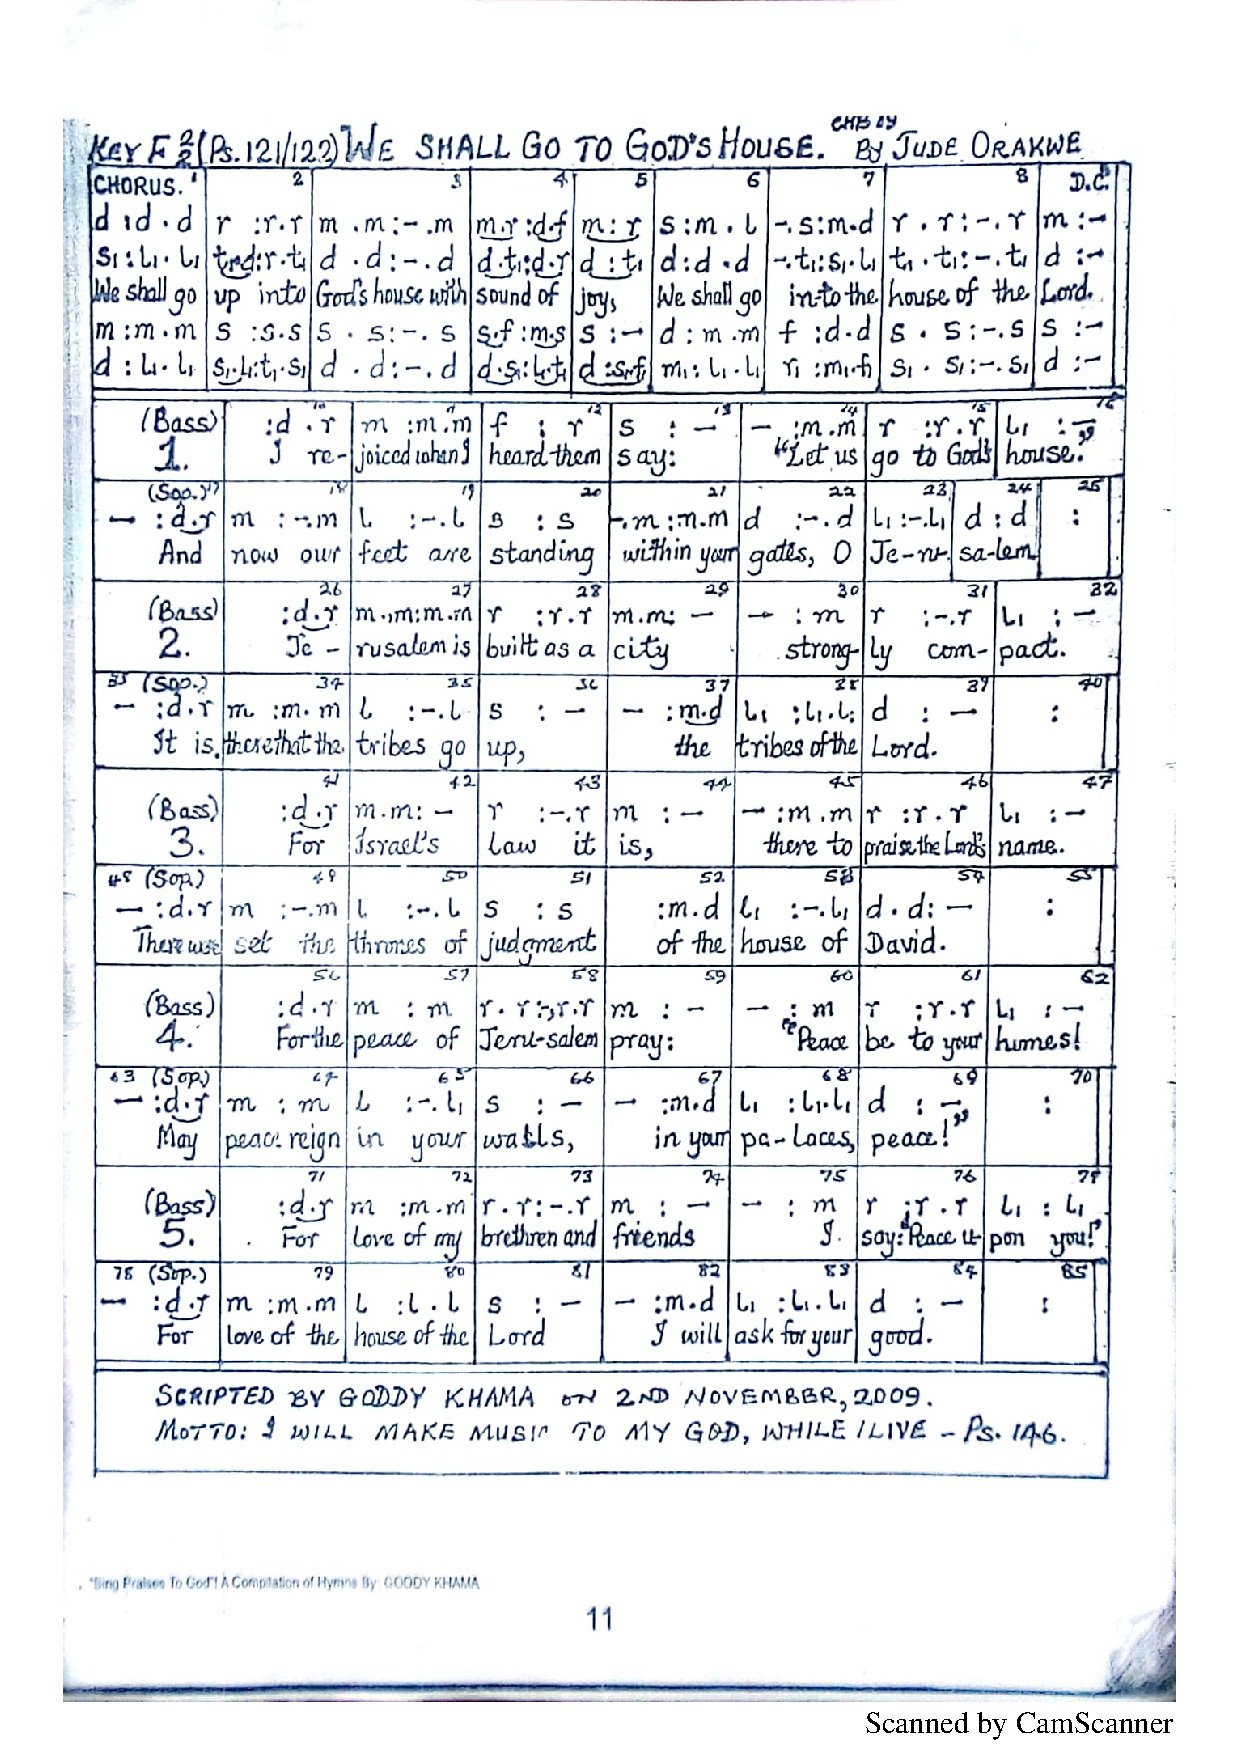 KEY F 2/2 (Ps. 121/122) WE SHALL GO TO GOD'S HOUSE. BY JUDE ORAKWE
CHORUS. 1 2 3 4 5 6 7 8 D.C.
d :d . d | r :r.r | m .m:-.m | m.r:d.f | m:r | s:m.l | -.s:m.d | r . r:-.r | m:-
s₁:l₁.l₁ | t₁.d:r.t₁ | d .d:-.d | d.t₁:d.r | d:t₁ | d:d.d | -.t₁:s₁.l₁ | t₁.t₁:-.t₁ | d:-
We shall go up into God's house with sound of joy, We shall go in-to the house of the Lord.
m:m.m | s :s.s | s . s:-. s | s.f:m.s | s:- | d:m.m | f :d.d | s . s:-.s | s :-
d:l₁.l₁ | s₁.l₁:t₁.s₁ | d .d:-.d | d.s₁:l₁.t₁ | d:s₁.f₁ | m₁:l₁.l₁ | r₁:m₁.f₁ | s₁. s₁:-.s₁ | d:-
10 11 12 13 14 15 16
(Bass) :d .r | m :m.m | f : r | s : - | - :m.m | r :r.r | l₁ :-
1. I re- joiced when I heard them say: "Let us go to God's house."
(Sop.) 17 18 19 20 21 22 23 24 25
- :d.r | m :-.m | l :-.l | s : s | -.m:m.m | d :-.d | l₁:-.l₁ | d:d | :
And now our feet are standing within your gates, O Je-ru- sa-lem
26 27 28 29 30 31 32
(Bass) :d.r | m.,m:m.m | r :r.r | m.m: - | - : m | r :-.r | l₁ : -
2. Je - rusalem is built as a city strong- ly com- pact.
33 (Sop.) 34 35 36 37 38 39 40
- :d.r | m :m.m | l :-.l | s : - | - :m.d | l₁ :l₁.l₁ | d : - | :
It is there that the tribes go up, the tribes of the Lord.
41 42 43 44 45 46 47
(Bass) :d.r | m.m: - | r :-.r | m : - | - :m.m | r :r.r | l₁ :-
3. For Israel's law it is, there to praise the Lord's name.
48 (Sop.) 49 50 51 52 53 54 55
- :d.r | m :-.m | l :-.l | s : s | :m.d | l₁ :-.l₁ | d.d: - | :
There were set the thrones of judgment of the house of David.
56 57 58 59 60 61 62
(Bass) :d.r | m : m | r. r:-,r.r | m : - | - : m | r :r.r | l₁ : -
4. For the peace of Jeru-salem pray: "Peace be to your humes!
63 (Sop.) 64 65 66 67 68 69 70
- :d.r | m : m | l :-.l₁ | s : - | - :m.d | l₁ :l₁.l₁ | d : - | :
May peace reign in your walls, in your pa-laces, peace!"
71 72 73 74 75 76 77
(Bass) :d.r | m :m.m | r.r:-.r | m : - | - : m | r :r.r | l₁ : l₁
5. For love of my brethren and friends I say: "Peace u- pon you!"
78 (Sop.) 79 80 81 82 83 84 85
- :d.r | m :m.m | l :l.l | s : - | - :m.d | l₁ :l₁.l₁ | d : - | :
For love of the house of the Lord I will ask for your good.
SCRIPTED BY GODDY KHAMA ON 2ND NOVEMBER, 2009.
MOTTO: I WILL MAKE MUSIC TO MY GOD, WHILE I LIVE - Ps. 146.
"Sing Praises To God"! A Compilation of Hymns By: GODDY KHAMA
11
Scanned by CamScanner